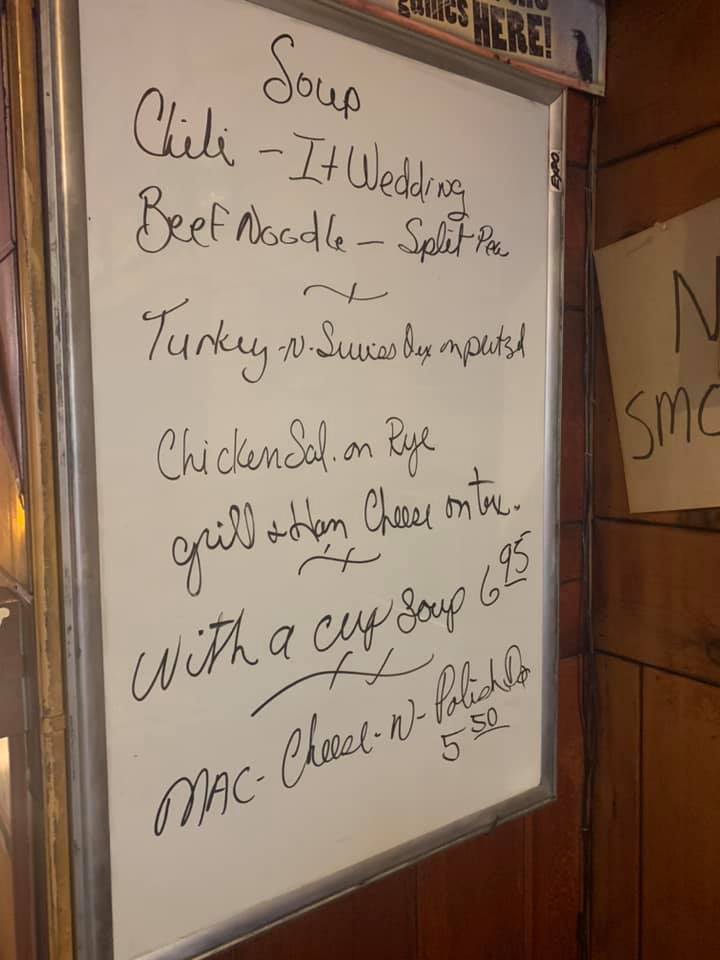 games HERE!
Soup
Chili - It Wedding
Beef Noodle - Split Pea
Turkey -N- Swiss on
Chicken Sal. on Rye
grill & Ham Cheese on
With a cup Soup 6 95
MAC- Cheese -N- Polish
5 50
EXPO
N
SMO